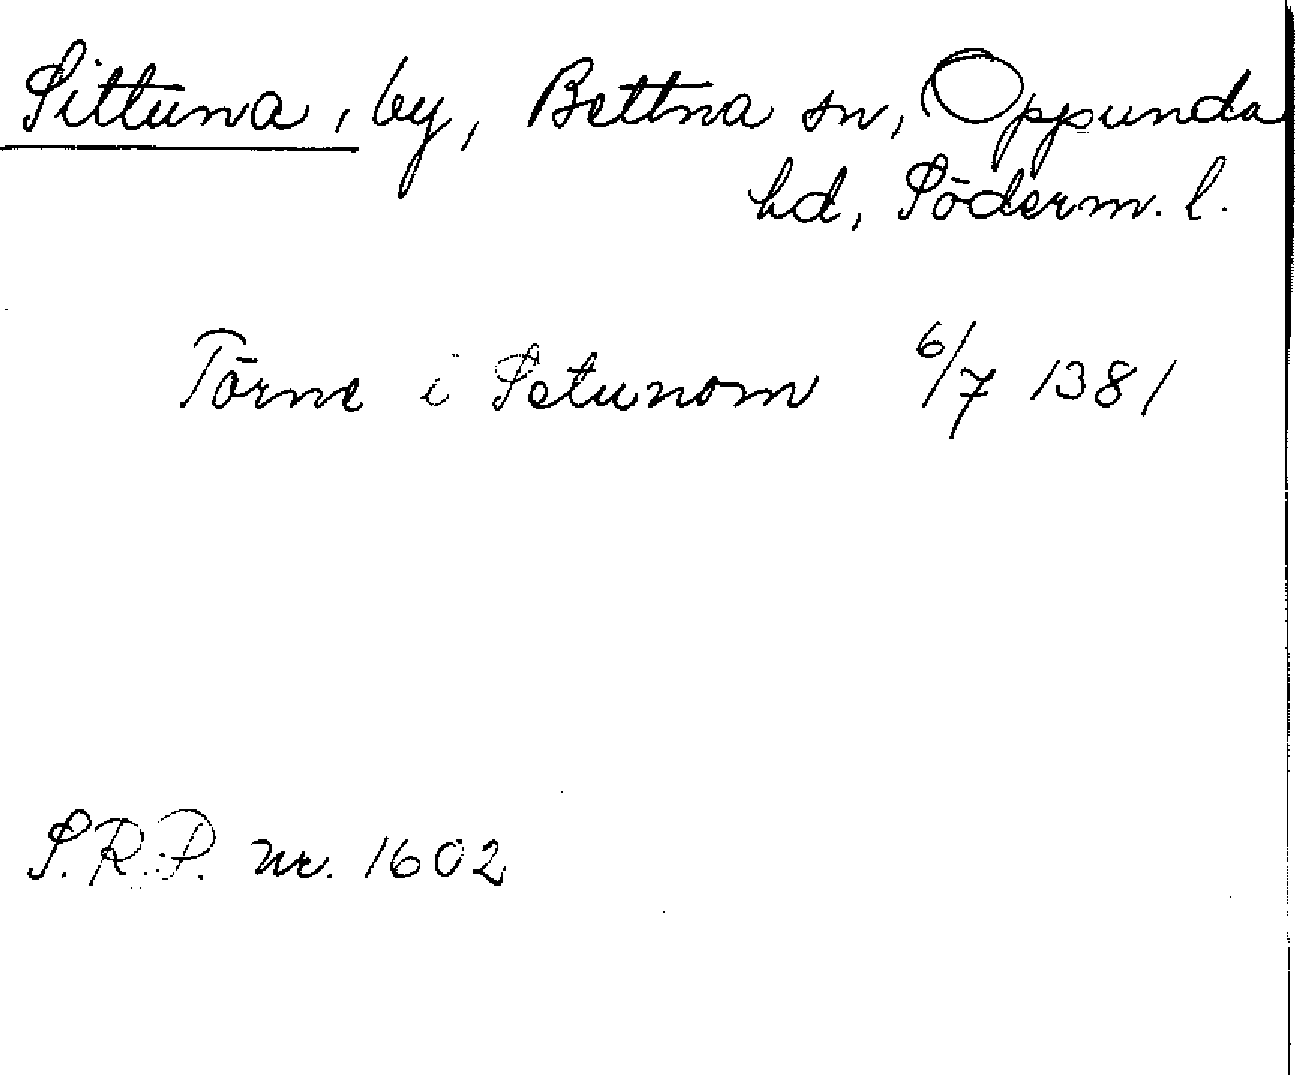 Sittuna, by, Bettna sn, Oppunda
hd, Söderm. l.
Törne i Setunom 6/7 1381
S.R.P. nr. 1602